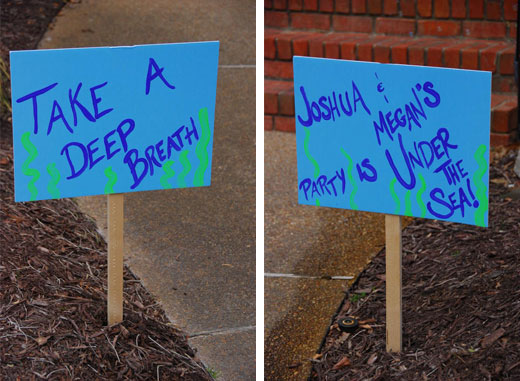 TAKE A
DEEP BREATH
JOSHUA &
MEGAN'S
PARTY IS UNDER
THE
SEA!